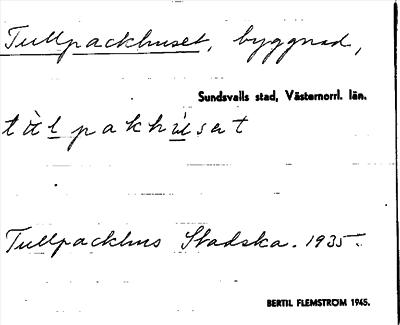 Tullpackhuset, byggnad,
Sundsvalls stad, Västernorrl. län.
tùlpakhúsat
Tullpackhus Stadska. 1935.
BERTIL FLEMSTRÖM 1945.